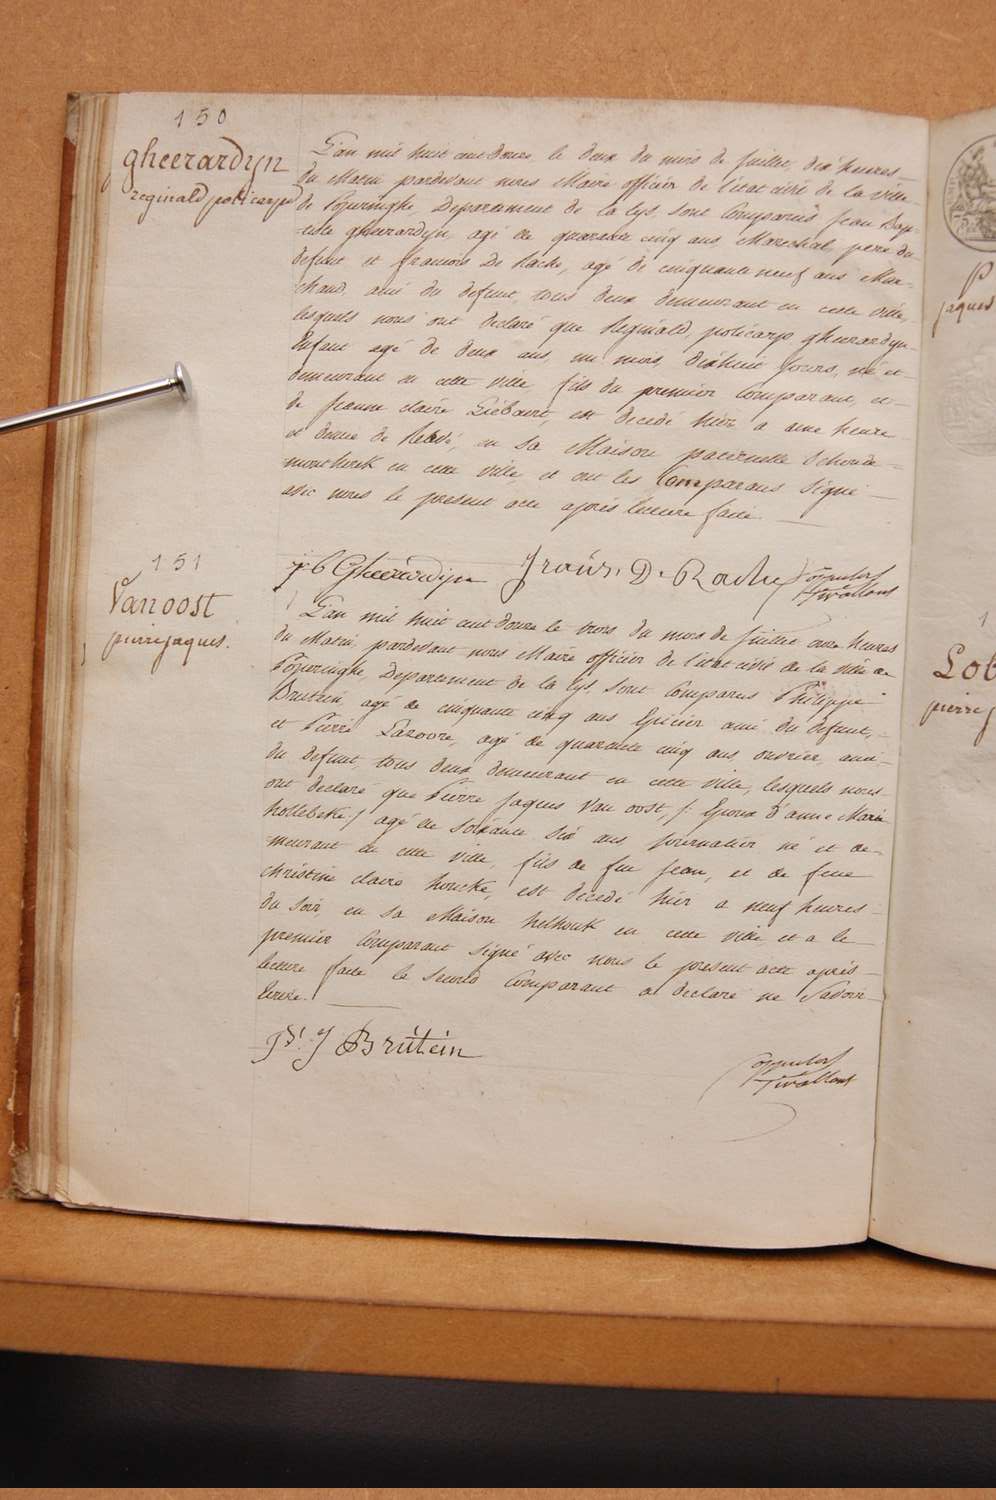 150
gheerardyn
reginald policarpe
L'an mil huit cent douze, le deux du mois de juillet, dix heures
du Matin pardevant nous Maire officier de l'état civil de la ville
de Poperinghe, Departement de la Lys, sont Comparus Jean Bap-
tiste gheerardyn, agé de quarante cinq ans, Marechal, pere du
defunt et francois De Rache, agé de cinquante neuf ans Mar-
chand, ami du defunt, tous deux demeurant en cette ville,
lesquels nous ont declaré que Reginald policarp gheerardyn
Enfant agé de deux ans, un mois, dixhuit jours, né et
demeurant en cette ville fils du premier Comparant, et
de Jeanne claire Liebaert, est decedé hier a une heure
et demie de Relevé, en sa Maison paternelle
en cette ville, et ont les Comparans signé
avec nous le present acte après lecture faite
j b Gheerardyn François De Rache
151
Van oost
pierre jaques.
L'an mil huit cent douze le trois du mois de juillet onze heures
du Matin, pardevant nous Maire officier de l'etat civil de la ville de
Poperinghe, Departement de la Lys, sont Comparus Philippe
Brutein, agé de cinquante cinq ans Epicier ami du defunt,
et Pierre agé de quarante cinq ans, ouvrier, ami
du defunt, tous deux demeurant en cette ville, lesquels nous
ont declaré que Pierre Jaques Van oost, /: Epoux d'anne Marie
hollebeke :/ agé de soixante six ans journalier né et de-
meurant en cette ville, fils de feu jean, et de feue
christine claire houcke, est decedé hier a neuf heures
du soir, en sa Maison helhouk en cette ville et a le
premier Comparant signé avec nous le present acte après
lecture faite le second Comparant a declaré ne Savoir
Ecrire.
J Brütein
P
jaques
Lob
pierre j